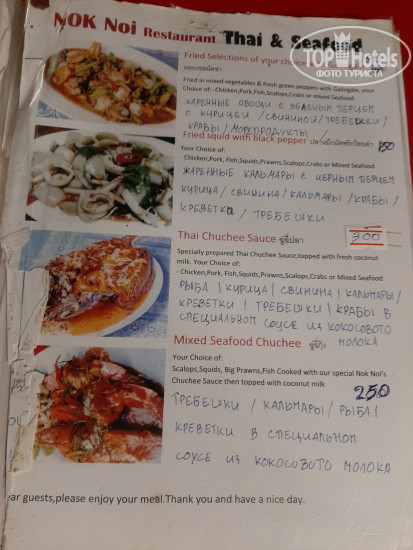 TOP Hotels
ФОТО ТУРИСТА
NOK Noi Restaurant Thai & Seafood
Fried Selections of your choice
Fried in mixed vegetables & fresh green peppers with Galingale, your
Choice of: -Chicken,Pork,Fish,Scalops,Crabs or mixed Seafood
ЖАРЕННЫЕ ОВОЩИ С ЗЕЛЕНЫМ ПЕРЦЕМ
С КУРИЦЕЙ /СВИНИНОЙ/ТРЕБЕШКИ/
КРАБЫ /МОРЕПРОДУКТЫ /
Fried squid with black pepper ปลาหมึกผัดพริกไทยดำ 150
Your Choice of:
- Chicken,Pork,Fish,Squids,Prawns,Scalops,Crabs or Mixed Seafood
ЖАРЕННЫЕ КАЛЬМАРЫ С ЧЕРНЫМ ПЕРЦЕМ
КУРИЦА /СВИНИНА /КАЛЬМАРЫ /КРАБЫ/
КРЕВЕТКИ / ТРЕБЕШКИ
300
Thai Chuchee Sauce ฉู่ฉี่ปลา
Specially prepared Thai Chuchee Sauce,topped with fresh coconut
milk. Your Choice of:
- Chicken,Pork, Fish,Squids,Prawns,Scalops,Crabs or Mixed Seafood
РЫБА | КУРИЦА | СВИНИНА | КАЛЬМАРЫ/
КРЕВЕТКИ | ТРЕБЕШКИ | КРАБЫ В
СПЕЦИАЛЬНОМ СОУСЕ ИЗ КОКОСОВОТО
МОЛОКА
Mixed Seafood Chuchee ฉู่ฉี่กุ้ง
Your Choice of:
Scalops,Squids, Big Prawns,Fish Cooked with our special Nok Noi's
Chuchee Sauce then topped with coconut milk
250
ТРЕБЕШКИ / КАЛЬМАРЫ / РЫБА|
КРЕВЕТКИ В СПЕЦИАЛЬНОМ
СОУСЕ ИЗ КОКОСОВОТО МОЛОКА
ear guests,please enjoy your meal.Thank you and have a nice day.